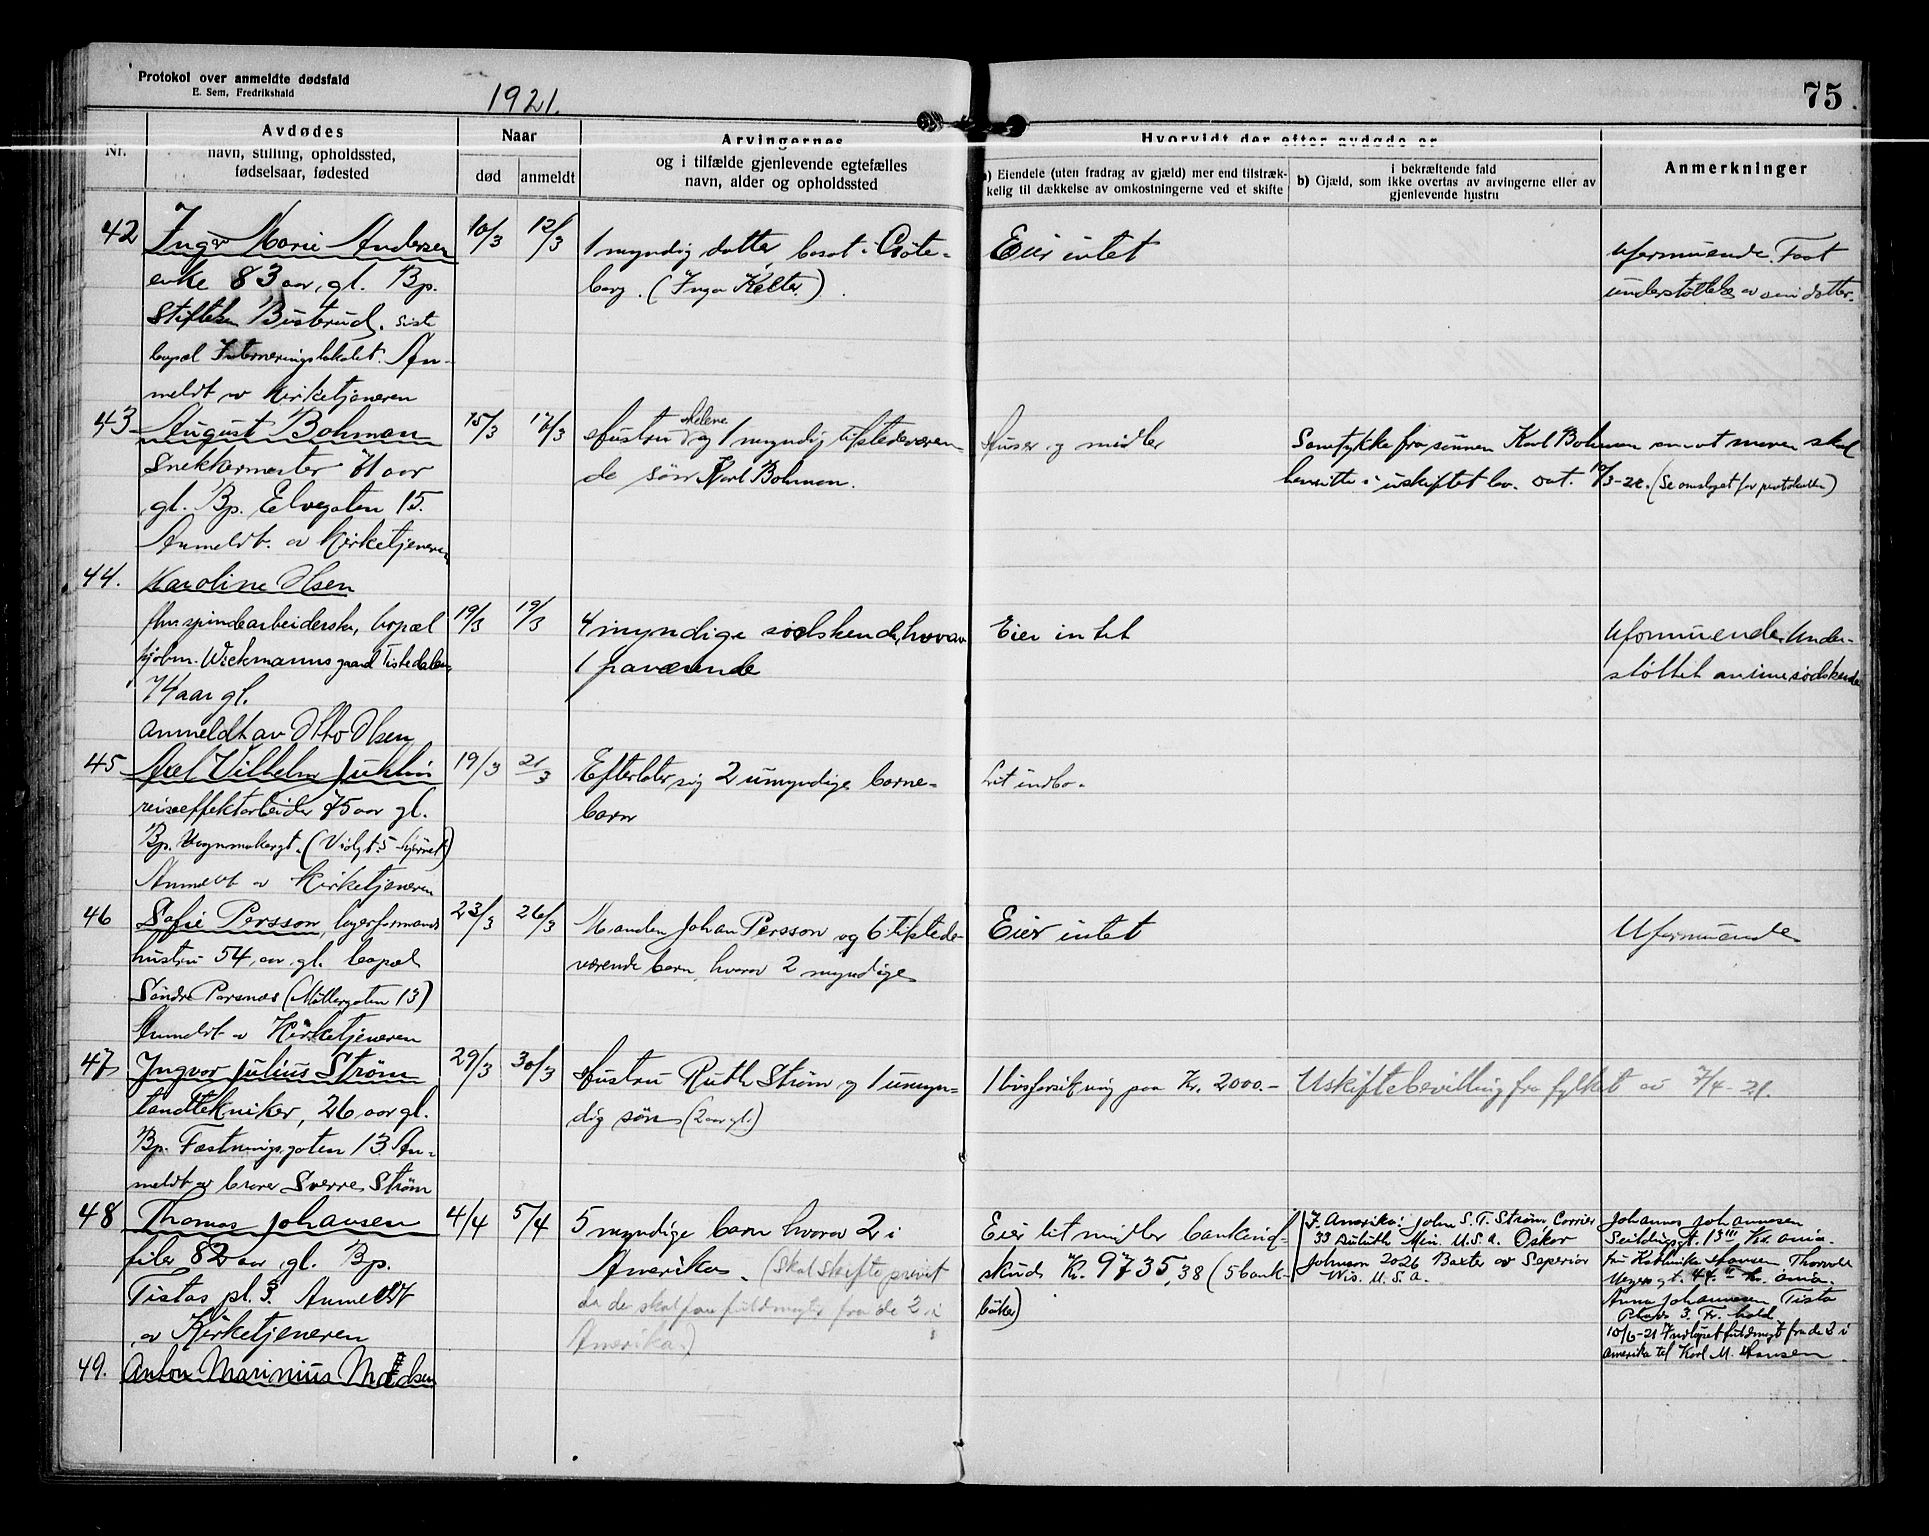 Protokol over anmeldte dødsfald
E. Sem, Fredrikshald
1921.
75
Nr.
Avdødes
navn, stilling, opholdssted,
fødselsaar, fødested
Naar
død
anmeldt
Arvingernes
og i tilfælde gjenlevende egtefælles
navn, alder og opholdssted
Hvorvidt der efter avdøde er
a) Eiendele (uten fradrag av gjæld) mer end tilstræk-
kelig til dækkelse av omkostningerne ved et skifte
i bekræftende fald
b) Gjæld, som ikke overtas av arvingerne eller av
gjenlevende hustru
Anmerkninger
42
Inger Marie Andersen
enke 83 aar, gl. Bp.
Stiftelsen Busterud, siste
bopæl Interneringslokalet. An-
meldt av Kirketjeneren
10/3
12/3
1 myndig datter, bosat i Gøte-
borg. (Inga Kelter)
Eier intet
Uformuende. Faat
understøttelse av sin datter.
43
August Bohman
Snekkermester 71 aar
gl. Bp. Elvegaten 15.
Anmeldt av Kirketjeneren
15/3
17/3
Hustru Helene og 1 myndig tilstedeværen-
de søn Karl Bohman.
Huser og midler
Samtykke fra sønnen Karl Bohman om at moren skal
hensitte i uskiftet bo. Dat. /3-21. (Se omslaget for protokollen)
44.
Karoline Olsen
fhv spindearbeiderske, bopæl
kjøbm. Wiekmanns gaard Tistedalen
74 aar gl.
anmeldt av Otto Olsen
19/3
19/3
4 myndige sødskende, hvorav
1 fraværende
Eier intet
Uformuende. Under-
støttet av sine sødskende
45
Axel Vilhelm Juhlin
reiseeffektarbeider 75 aar gl.
Bp. Vognmakergt. (Violgt. 5 hjørnet)
Anmeldt av Kirketjeneren
19/3
21/3
Efterlater sig 2 umyndige barne-
barn
Lit indbo.
46
Sofie Persson, lagerformands
hustru 54 aar, gl. bopæl
Søndre Parsnæs (Møllergaten 13)
Anmeldt av Kirketjeneren
23/3
26/3
Manden Johan Persson og 6 tilstede-
værende barn, hvorav 2 myndige
Eier intet
Uformuende
47
Ingvar Julius Strøm
tandtekniker, 26 aar gl.
Bp. Fæstningsgaten 13. An-
meldt av bror Sverre Strøm
29/3
30/3
Hustru Ruth Strøm og 1 umyn-
dig søn (2 aar gl.)
Livsforsikring paa Kr. 2000.-
Uskiftebevilling fra fylket av 7/4-21.
48
Thomas Johansen
filer 82 aar, gl. Bp.
Tistas pl. 3. Anmeldt
av Kirketjeneren
4/4
5/4
5 myndige barn hvorav 2 i
Amerika. (Skal skifte privat
da de skal faa fuldmagt fra de 2 i
Amerika.)
Eier lit midler bankind-
skud Kr. 9735,38 (5 bank-
bøker)
I Amerika: John S. T. Strøm, Carrier
33 Duluth Min. U.S.A. Oskar
Johnson 2026 Baxter av Superior
Wis. U.S.A.
Johannes Johannesen
Seildugsgt. 13 III Kr.ania.
fru Kathinka Hansen Thorvald
Meyers gt. 44 II Kr.ania.
Anna Johannesen Tista
Plads 3. Fr.hald
10/6-21 Indløpet fuldmagt fra de 2 i
Amerika til Karl M. Hansen.
49.
Anton Marinius Madsen